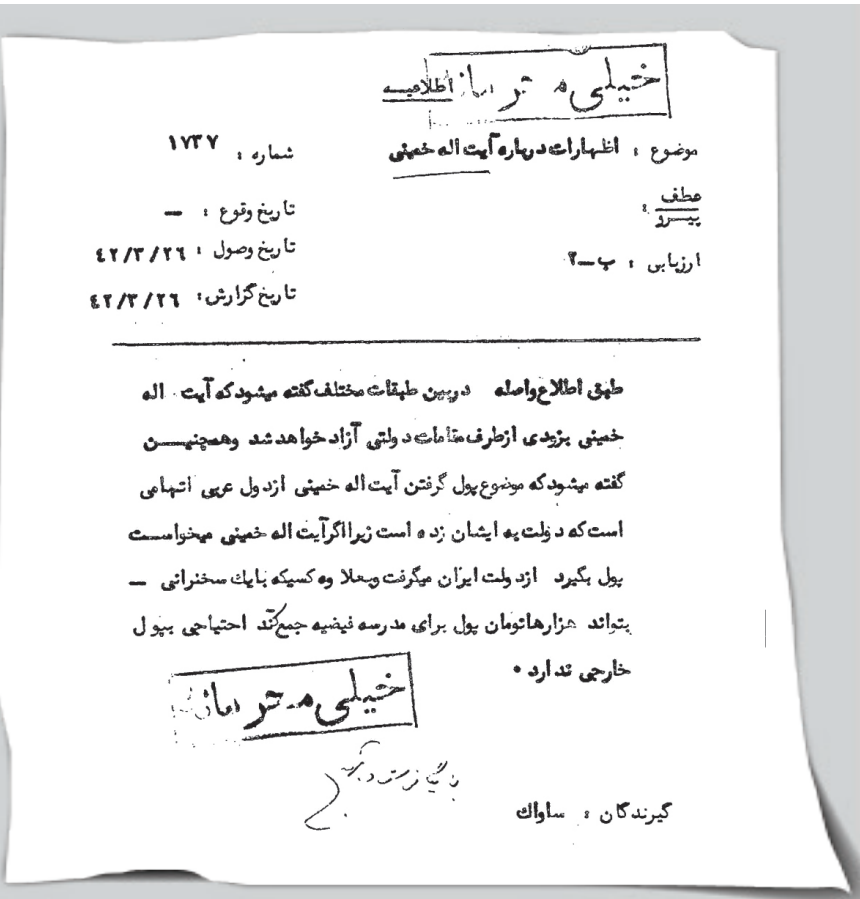 خیلی محرمانه
اطلاعیه
موضوع : اظهارات درباره آیت اله خمینی
شماره : ۱۷۳۷
عطف
پیرو :
تاریخ وقوع : —
تاریخ وصول : ٤۲/۳/۲٦
ارزیابی : ب-۲
تاریخ گزارش : ٤۲/۳/۲٦
طبق اطلاع واصله دربین طبقات مختلف گفته میشود که آیت اله
خمینی بزودی ازطرف مقامات دولتی آزاد خواهد شد وهمچنیـــن
گفته میشود که موضوع پول گرفتن آیت اله خمینی ازدول عربی اتهامی
است که دولت به ایشان زده است زیرا اگر آیت اله خمینی میخواســت
پول بگیرد ازدولت ایران میگرفت وبعلاوه کسیکه بایك سخنرانی —
بتواند هزارها تومان پول برای مدرسه فیضیه جمع کند احتیاجی بپول
خارجی ندارد ۰
خیلی محرمانه
گیرندگان : ساواك